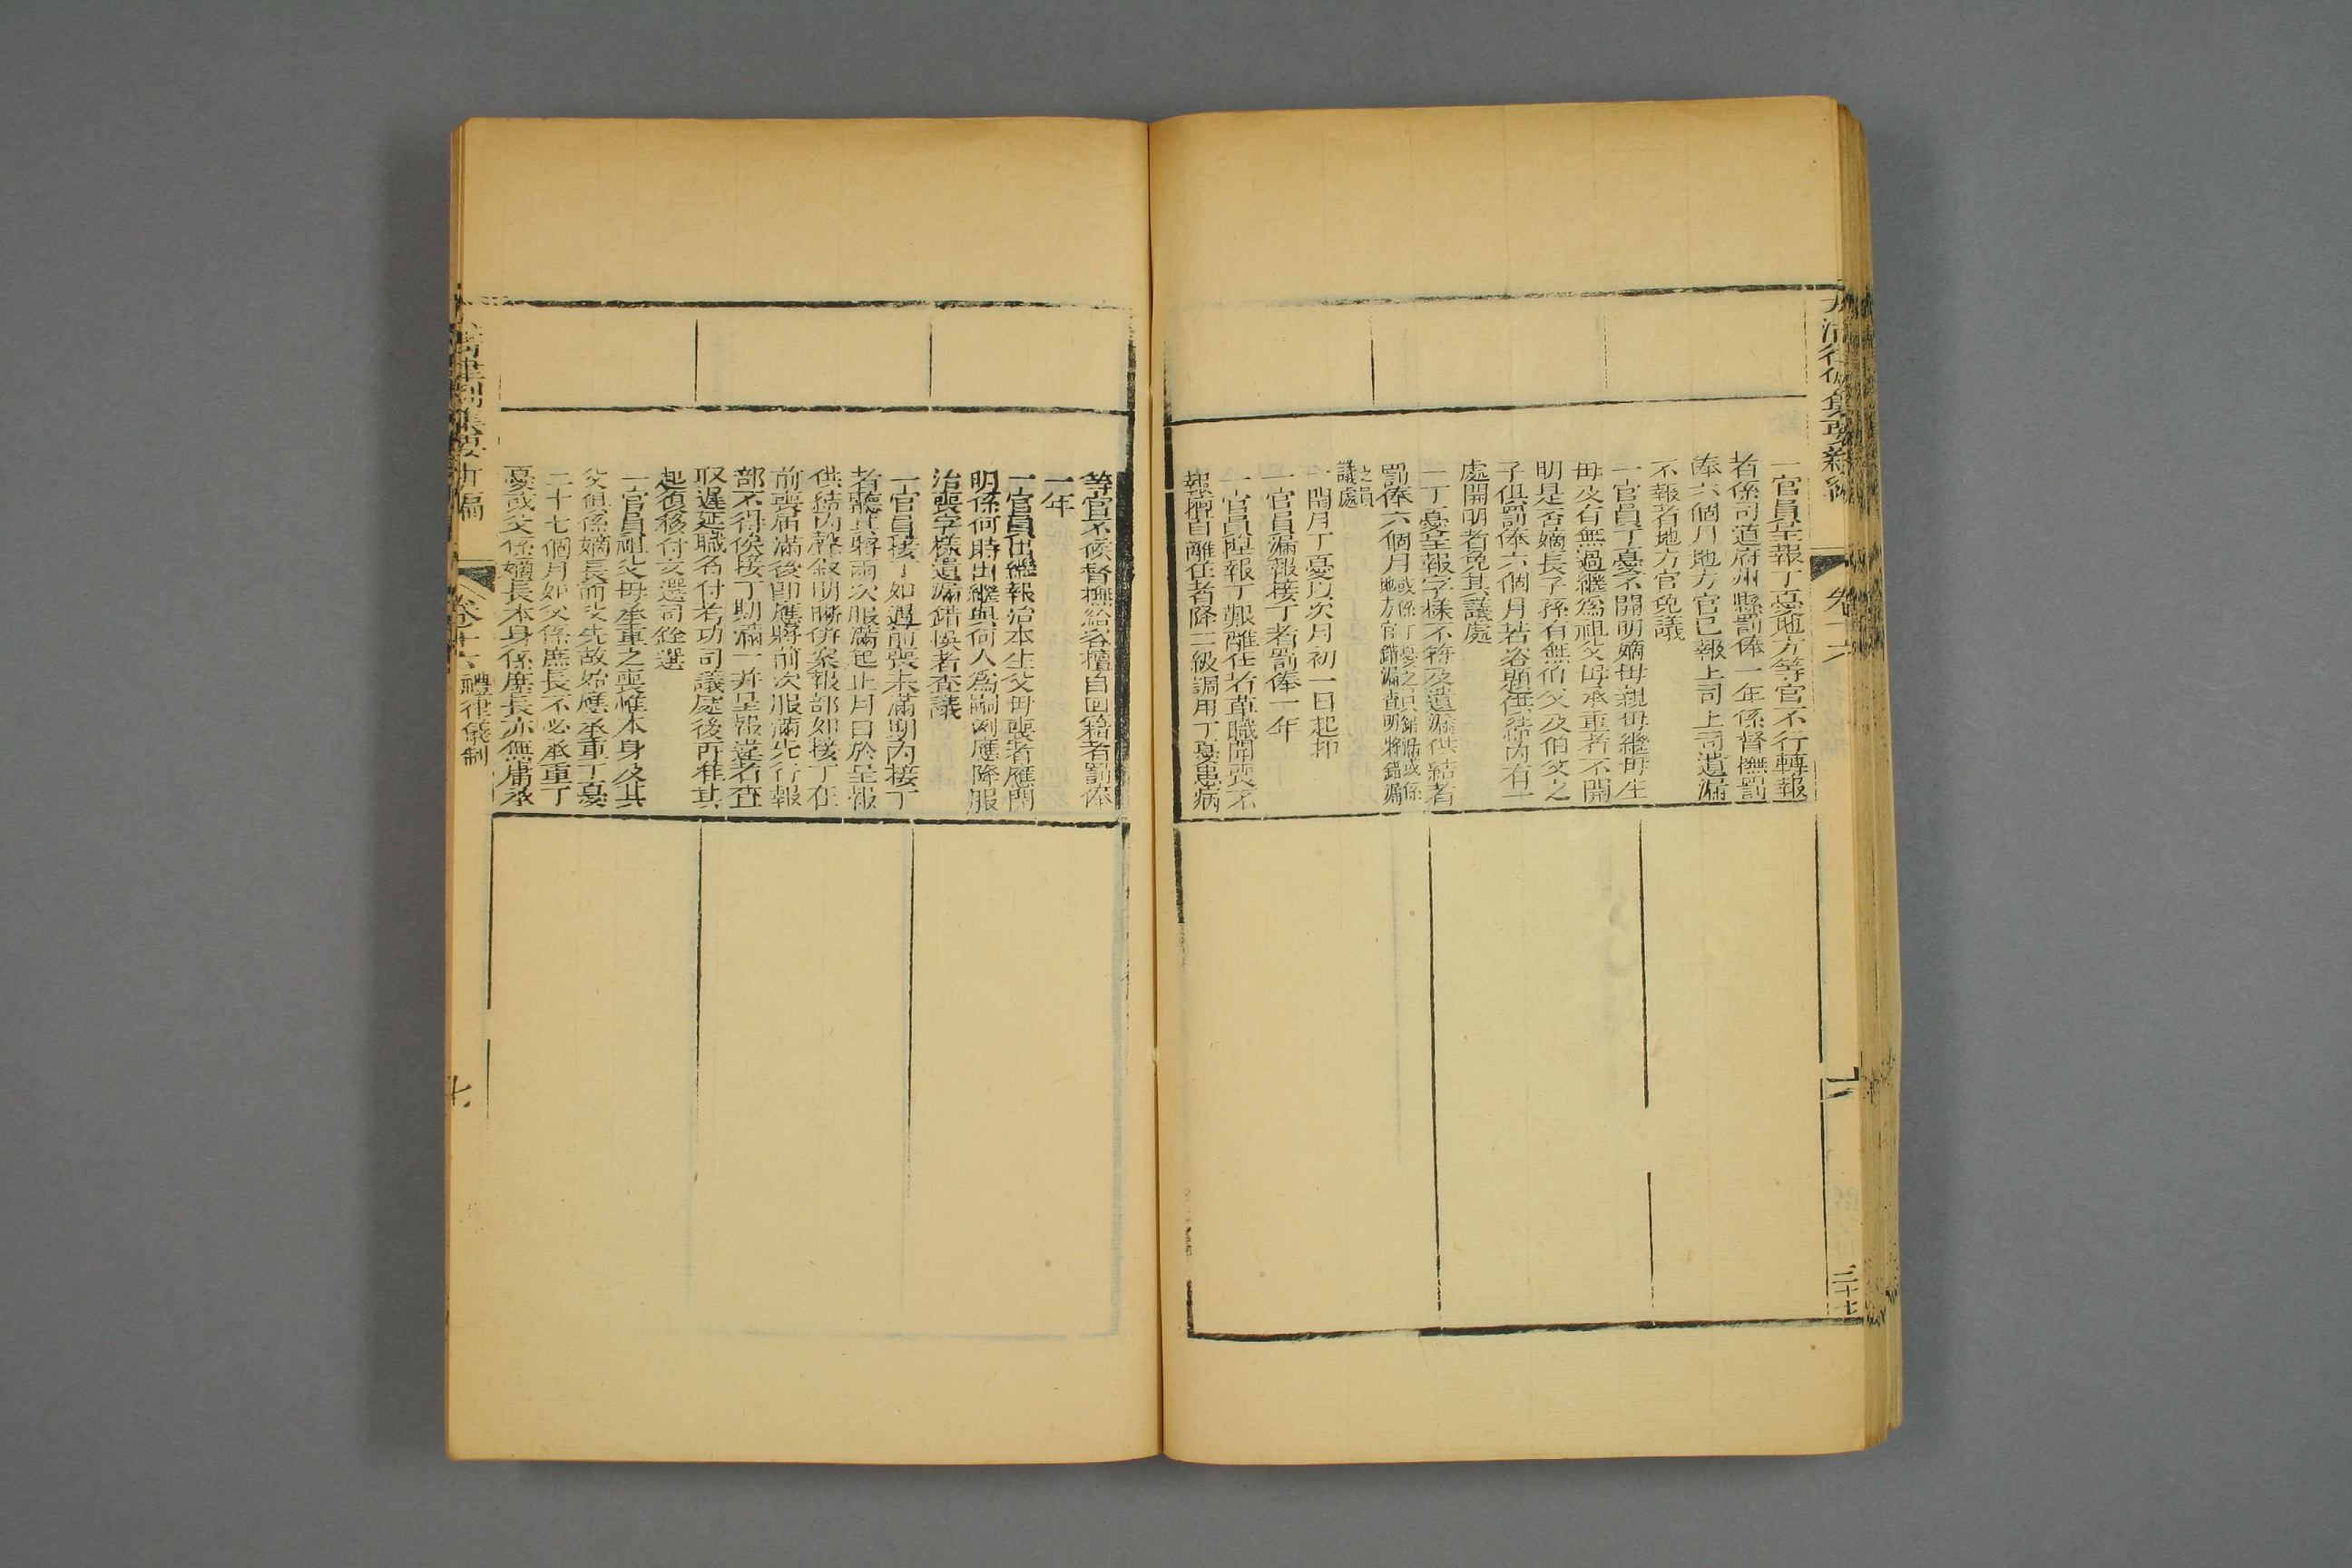 大清律例集要新編
卷十六
六
三十七
一官員呈報丁憂地方等官不行轉報
者係司道府州縣罰俸一年係督撫罰
俸六個月地方官已報上司上司遺漏
不報者地方官免議
一官員丁憂不開明嫡母親母繼母生
母及有無過繼爲祖父母承重者不開
明是否嫡長子孫有無伯父及伯父之
子俱罰俸六個月若咨題供結內有一
處開明者免其議處
一丁憂呈報字樣不符及遺漏供結者
罰俸六個月或係丁憂之員錯誤或係
地方官錯漏查明將錯漏
之員
議處
一閏月丁憂以次月初一日起抑
一官員漏報接丁者罰俸一年
一官員捏報丁艱離任者革職聞喪不
報擅自離任者降二級調用丁憂患病
等官不候督撫給咨擅自回籍者罰俸
一年
一官員出繼報治本生父母喪者應開
明係何時出繼與何人爲嗣例應降服
治喪字樣遺漏錯悞者查議
一官員接丁如遇前喪未滿期內接丁
者聽其將兩次服滿起止月日於呈報
供結內聲敘明晰併案報部如接丁在
前喪届滿後卽應將前次服滿先行報
部不得俟接丁期滿一并呈報違者查
取遲延職名付考功司議處後再准其
起復移付文選司銓選
一官員祖父母承重之喪惟本身及其
父俱係嫡長而父先故始應承重丁憂
二十七個月如父係庶長不必承重丁
憂或父係嫡長本身係庶長亦無庸承
大清律例集要新編
卷十六
禮律儀制
七